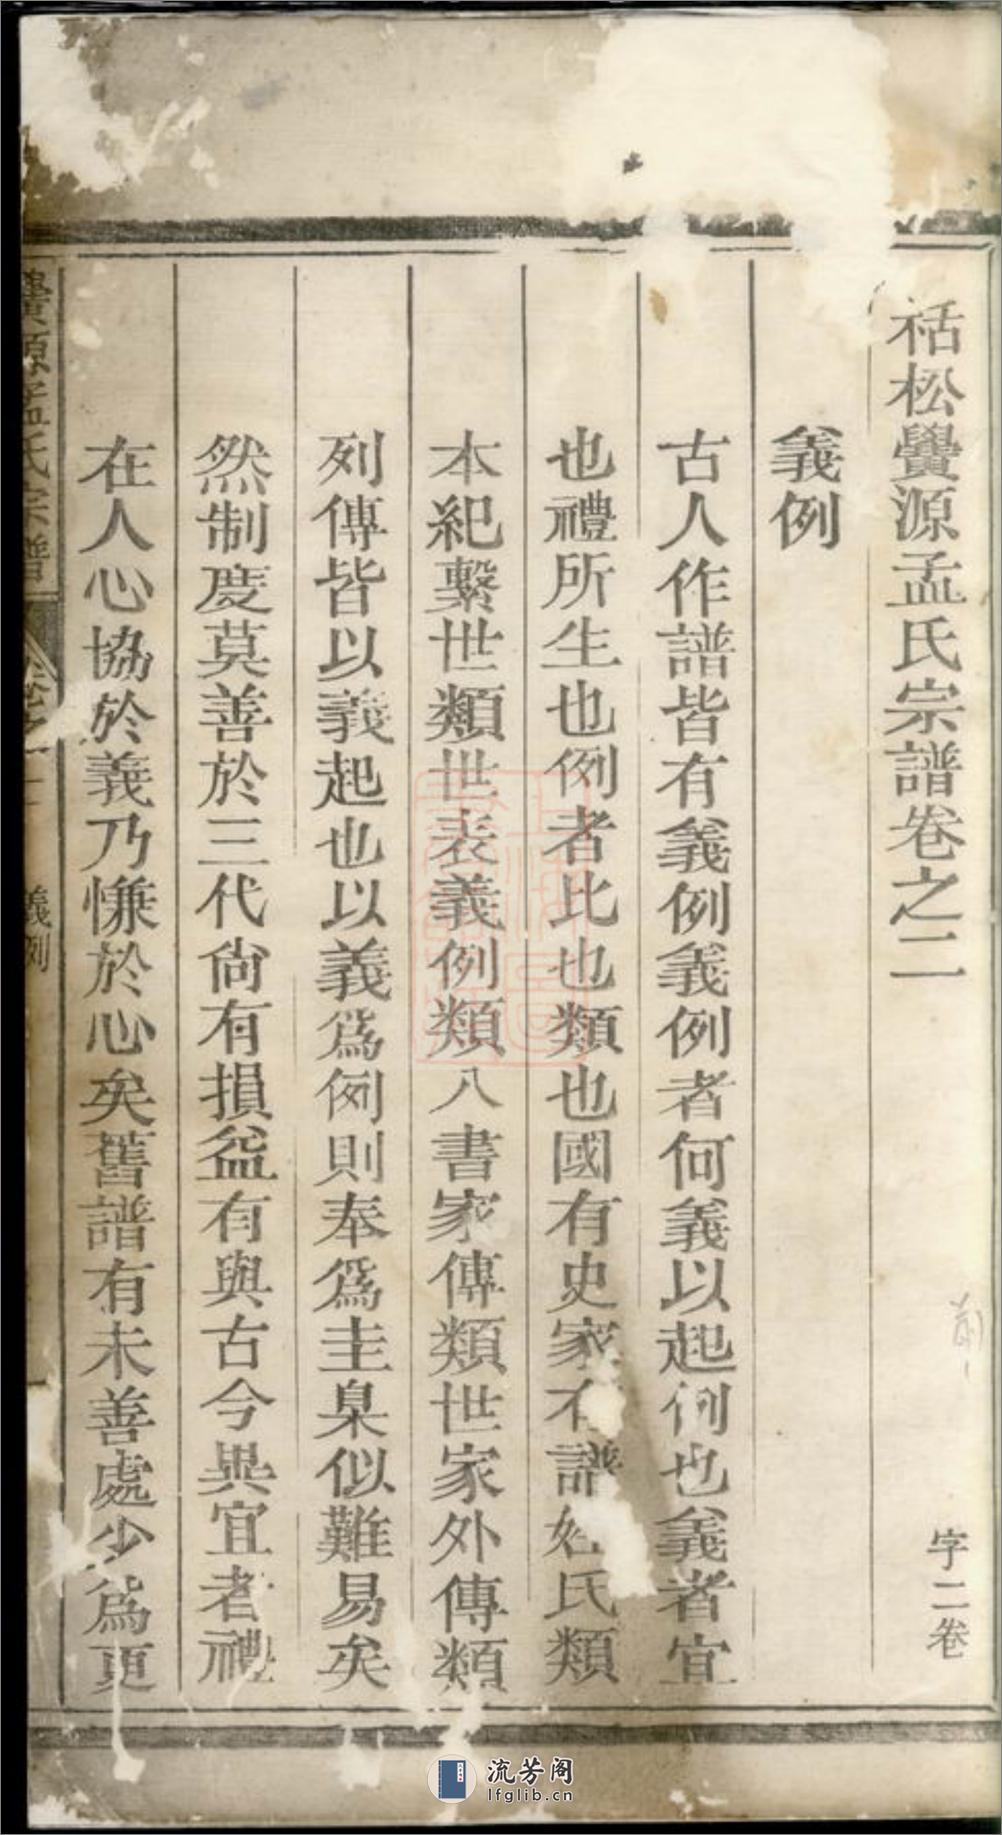 祮松舋源孟氏宗譜卷之二
字二卷
義例
古人作譜皆有義例義例者何義以起例也義者宜
也禮所生也例者比也類也國有史家有譜姓氏類
本紀繫世類世表義例類八書家傳類世家外傳類
列傳皆以義起也以義爲例則奉爲圭臬似難易矣
然制度莫善於三代尙有損益有與古今異宜者禮
在人心協於義乃慊於心矣舊譜有未善處少爲更
源孟氏宗譜
卷之二
義例
流芳阁
lfglib.cn